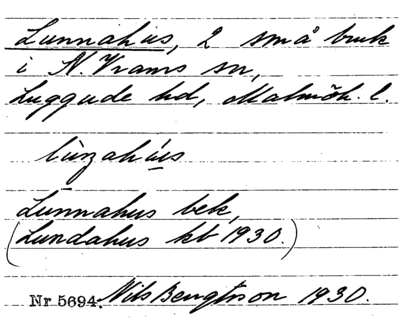 Lunnahus, 2 små bruk
i N. Vrams sn,
Luggude hd, Malmöh. l.
Lunnahus bek,
(Lundahus kt 1930.)
Nr 5694. Nils Bengtsson 1930.